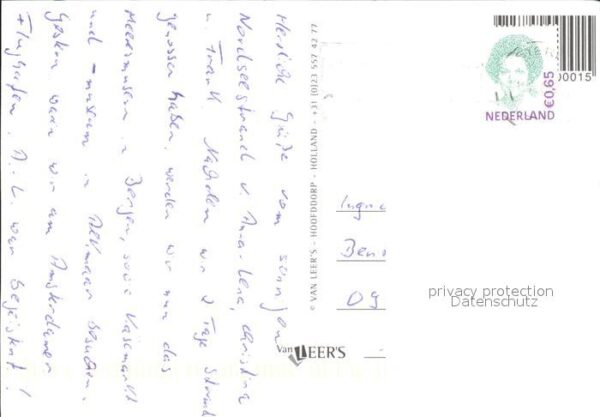 Herzliche Grüße vom sonnigen
Nordseestrand v. Anna-Lena, Christina
u. Frank. Nachdem wir 2 Tage Strand
genossen haben, werden wir nun das
Meermuseum in Bergen, sowie Käsemarkt
und -museum in Alkmaar besuchen.
Gestern waren wir am Amsterdamer
Flughafen. A.-L. war begeistert!
© VAN LEER'S - HOOFDDORP - HOLLAND - +31 (0)23 557 42 77
Van LEER'S
00015
€0,65
NEDERLAND
Ingri
Ben
09
privacy protection
Datenschutz